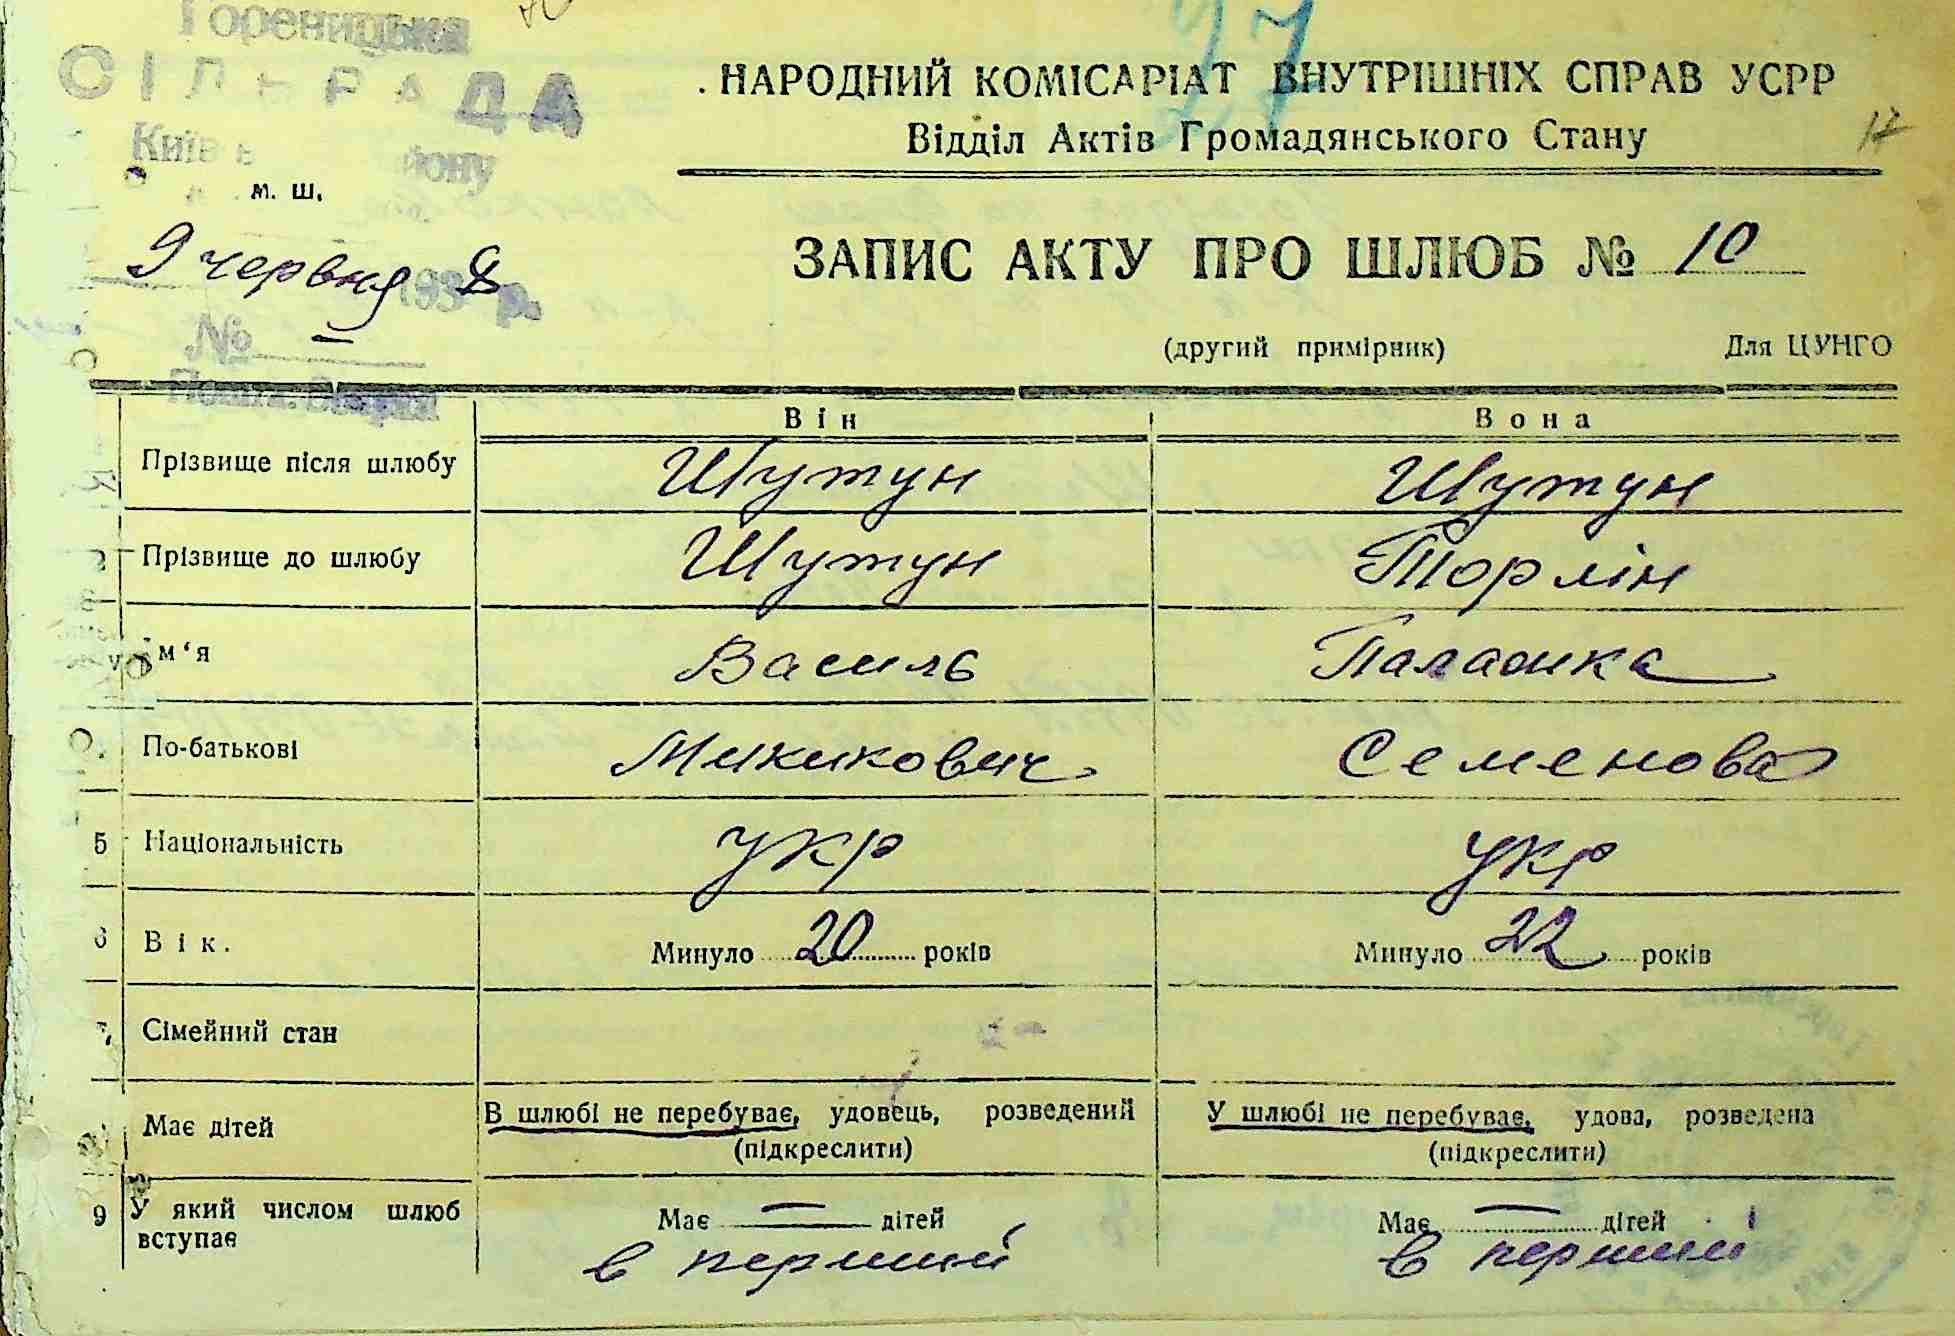 Гореницька
27
СІЛЬРАДА
НАРОДНИЙ КОМІСАРІАТ ВНУТРІШНІХ СПРАВ УСРР
Відділ Актів Громадянського Стану
17
Київ району
м. ш.
9 червня 193 р.
ЗАПИС АКТУ ПРО ШЛЮБ № 10
№
(другий примірник) Для ЦУНГО
Пошта
Він Вона
Прізвище після шлюбу Шутун Шутун
Прізвище до шлюбу Шутун Торлін
ім'я Василь
По-батькові Семенова
5 Національність укр укр
6 Вік. Минуло 20 років Минуло 22 років
7 Сімейний стан
Має дітей В шлюбі не перебуває, удовець, розведений У шлюбі не перебуває, удова, розведена
(підкреслити) (підкреслити)
9 У який числом шлюб вступає Має — дітей Має — дітей
в перший в перший